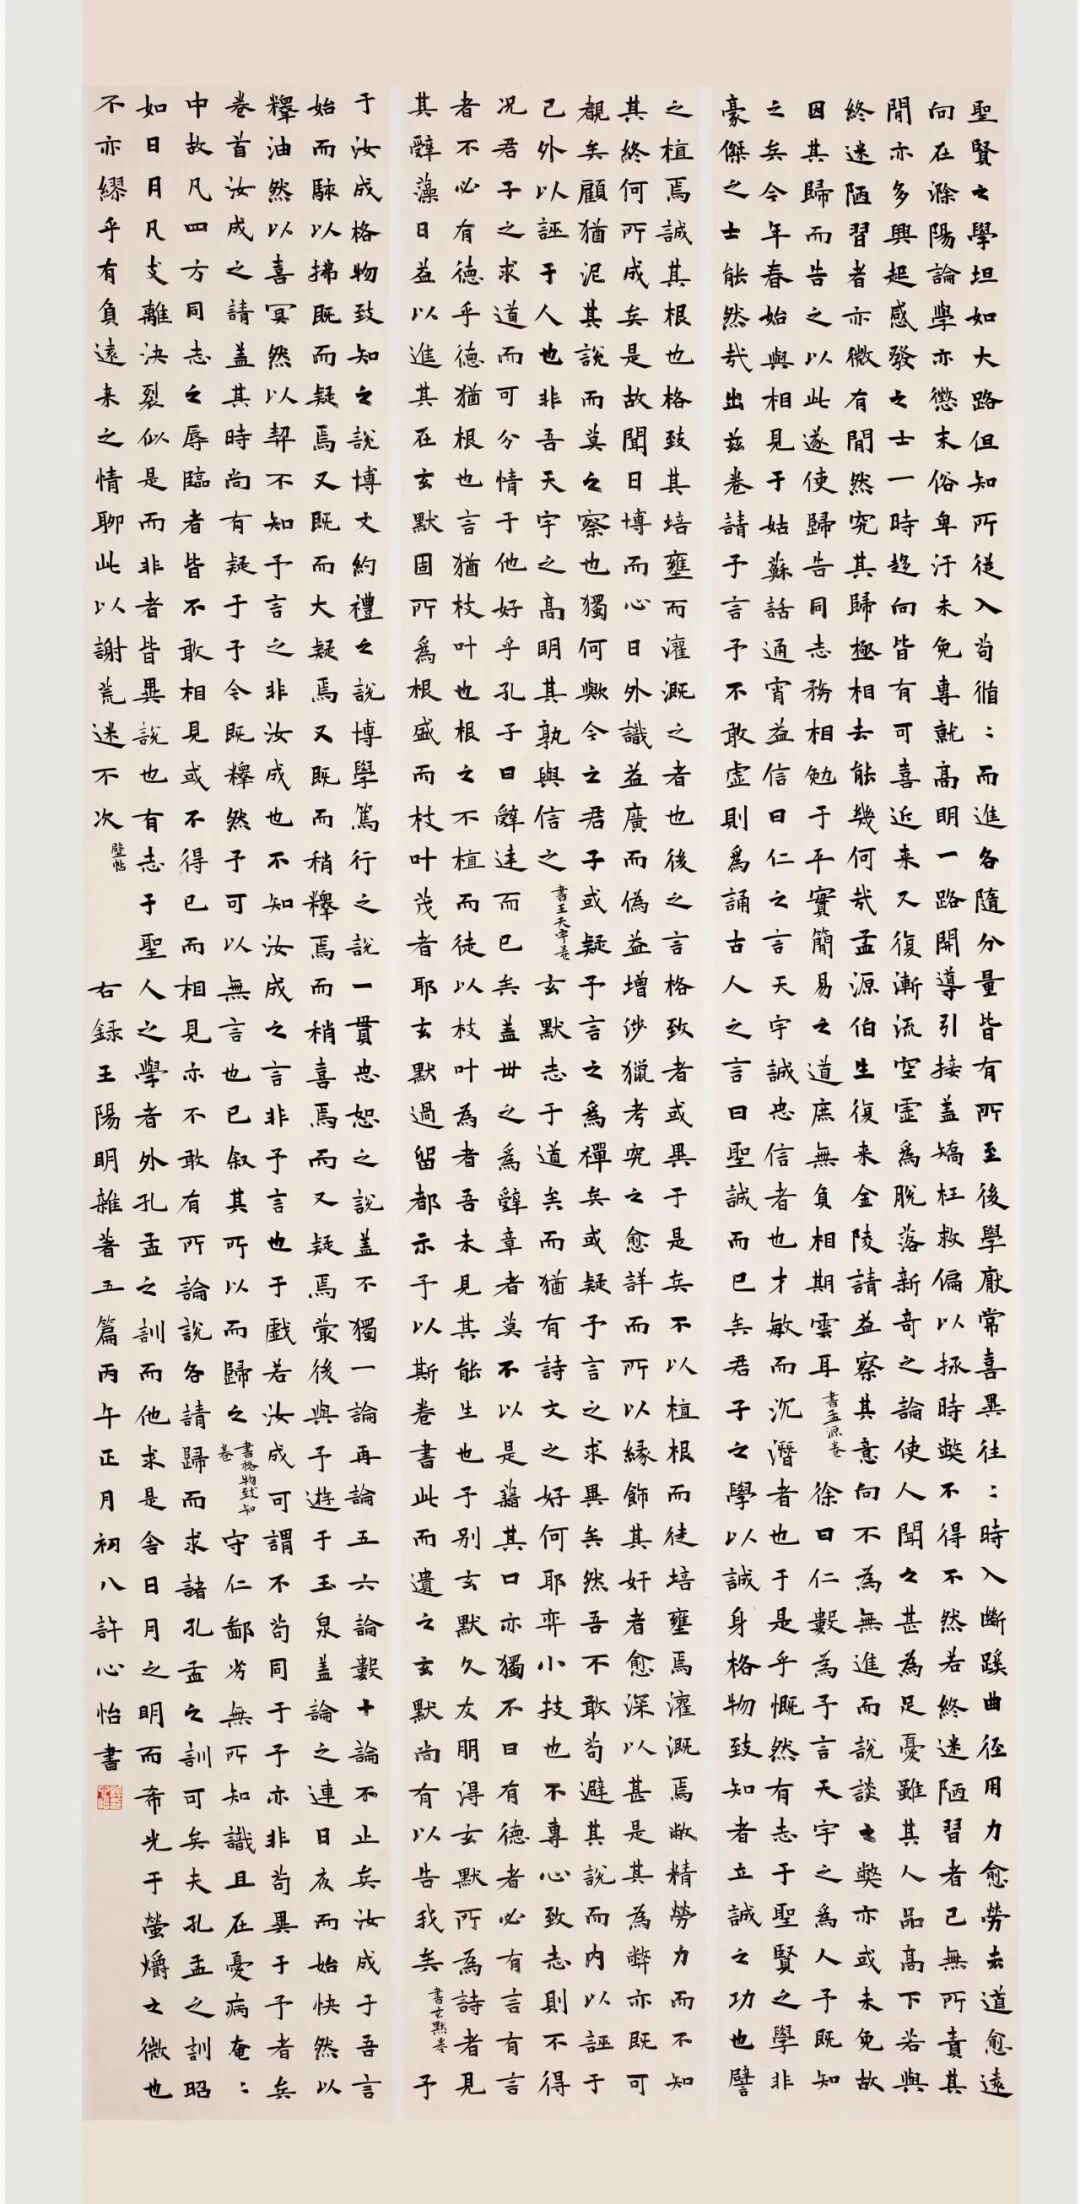 聖賢之學坦如大路但知所從入苟循〻而進各隨分量皆有所至後學厭常喜異往〻時入斷蹊曲徑用力愈勞去道愈遠
向在滁陽論學亦懲末俗卑汙未免專就高明一路開導引接蓋矯枉救偏以拯時獘不得不然若終迷陋習者已無所責其
閒亦多興起感發之士一時趨向皆有可喜近来又復漸流空虛爲脫落新奇之論使人聞之甚為足憂雖其人品高下若與
終迷陋習者亦微有閒然究其歸極相去能幾何哉孟源伯生復来金陵請益察其意向不為無進而說談之獘亦或未免故
因其歸而告之以此遂使歸告同志務相勉于平實簡易之道庶無負相期雲耳 書孟源卷 徐曰仁數為予言天宇之爲人予既知
之矣今年春始與相見于姑蘇話通宵益信曰仁之言天宇誠忠信者也才敏而沉潛者也于是乎慨然有志于聖賢之學非
豪傑之士能然哉出茲卷請予言予不敢虛則爲誦古人之言曰聖誠而已矣君子之學以誠身格物致知者立誠之功也譬
之植焉誠其根也格致其培壅而灌溉之者也後之言格致者或異于是矣不以植根而徒培壅焉灌溉焉敝精勞力而不知
其終何所成矣是故聞日博而心日外識益廣而偽益增涉獵考究之愈詳而所以緣飾其奸者愈深以甚是其為弊亦既可
覩矣顧猶泥其說而莫之察也獨何歟今之君子或疑予言之爲禪矣或疑予言之求異矣然吾不敢苟避其說而内以誣于
已外以誣于人也非吾天宇之高明其孰與信之 書王天宇卷 玄默志于道矣而猶有詩文之好何耶弈小技也不專心致志則不得
况君子之求道而可分情于他好乎孔子曰辭達而已矣蓋世之爲辭章者莫不以是藉其口亦獨不曰有德者必有言有言
者不必有德乎德猶根也言猶枝叶也根之不植而徒以枝叶為者吾未見其能生也予别玄默久友朋得玄默所為詩者見
其辭藻日益以進其在玄默固所爲根盛而枝叶茂者耶玄默過留都示予以斯卷書此而遺之玄默尚有以告我矣 書玄默卷 予
于汝成格物致知之說博文約禮之說博學篤行之說一貫忠恕之說蓋不獨一論再論五六論數十論不止矣汝成于吾言
始而駴以拂既而疑焉又既而大疑焉又既而稍釋焉而稍喜焉而又疑焉最後與予遊于玉泉蓋論之連日夜而始快然以
釋油然以喜冥然以契不知予言之非汝成也不知汝成之言非予言也于戲若汝成可謂不苟同于予亦非苟異于予者矣
卷首汝成之請蓋其時尚有疑于予今既釋然予可以無言也已叙其所以而歸之 書格物致知卷 守仁鄙劣無所知識且在憂病奄〻
中故凡四方同志之辱臨者皆不敢相見或不得已而相見亦不敢有所論說各請歸而求諸孔孟之訓可矣夫孔孟之訓昭
如日月凡支離決裂似是而非者皆異說也有志于聖人之學者外孔孟之訓而他求是舍日月之明而希光于螢爝之微也
不亦繆乎有負遠来之情聊此以謝荒迷不次 壁帖 右録王陽明雜著五篇丙午正月初八許心怡書